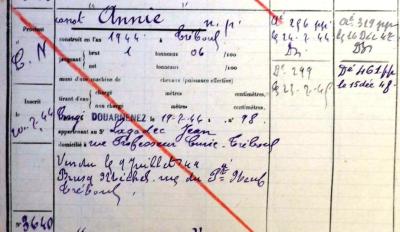 canot Annie n.p.
construit en l'an 1944 Tréboul
jaugeant brut 1 tonneau 06 /100
net tonneau /100
mû d'une machine de chevaux (puissance effective)
tirant d'eau non chargé mètres centimètres.
chargé mètres centimètres.
Congé DOUARNENEZ 19-2-44 n° 98.
appartenant au Sr Lagadec Jean
domicilié à rue Professeur Curie Tréboul
Vendu le 9 Juillet 44
Brusq Michel rue du
Tréboul.
Précision
C. N
Inscrit
20.2.44
3640
Ae 296
le 24-2-44
De 299
Ae 319
le 16 Déc 47
De 461
le 15 déc 48.